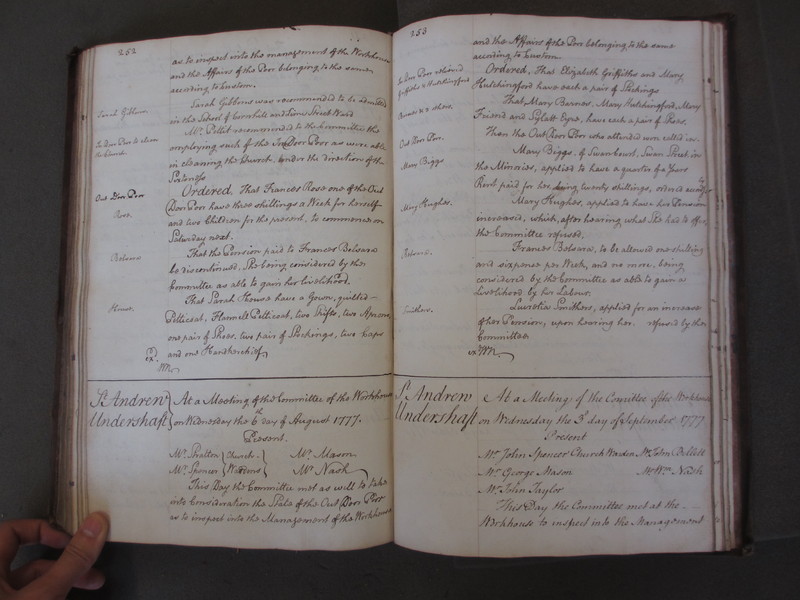 252
as to inspect into the management of the Workhouse
and the Affairs of the Poor belonging to the same
according to Custom.
Sarah Gibbons
Sarah Gibbons was recommended to be admitted
in the School of Cornhill and Lime Street Ward
In Door Poor to clean
the Church
Mr. Pellet recommended to the Committee the
employing such of the In Door Poor as were able
in cleaning the Church, under the direction of the
Sextoness
Out Door Poor
Rose.
Ordered, That Frances Rose one of the Out
Door Poor have three shillings a Week for herself
and two Children for the present, to commence on
Saturday next.
Belsara
That the Pension paid to Frances Belsara
be discontinued, She being considered by the
Committee as able to gain her livelihood.
House.
That Sarah House have a Gown, quilted
Petticoat, Flannel Petticoat, two Shifts, two Aprons,
one pair of Shoes, two pair of Stockings, two Caps
and one Handkerchief
ex.
St. Andrew
Undershaft
At a Meeting of the Committee of the Workhouse
on Wednesday the 6th day of August 1777.
Present.
Mr. Pratten Church Mr. Mason
Mr. Spencer Wardens Mr. Nash
This Day the Committee met as well to take
into Consideration the State of the Out Door Poor
as to inspect into the Management of the Workhouse
253
and the Affairs of the Poor belonging to the same
according to Custom.
In Door Poor
Griffiths & Hutchingford
Ordered, That Elizabeth Griffiths and Mary
Hutchingford have each a pair of Stockings
Barnes & others.
That, Mary Barnes, Mary Hutchingford, Mary
Friend and have each a pair of Shoes.
Out Door Poor.
Then the Out Door Poor who attended were called in.
Mary Biggs
Mary Biggs, of Swan Court, Swan Street in
the Minories, applied to have a quarter of a Years
Rent paid for her being twenty shillings, ordered
Mary Hughes.
Mary Hughes, applied to have her Pension
increased, which, after hearing what She had to offer,
the Committee refused.
Belsara.
Frances Belsara, to be allowed one shilling
and sixpence per Week, and no more, being
considered by the Committee as able to gain a
Livelihood by her Labour.
Smithers.
Lucretia Smithers, applied for an increase
of her Pension, upon hearing her. refused by the
Committee
ex.
St. Andrew
Undershaft
At a Meeting of the Committee of the Workhouse
on Wednesday the 3d day of September 1777
Present
Mr. John Spencer Church Warden Mr. John Pellett
Mr. George Mason Mr. Wm. Nash
Mr. John Taylor
This Day the Committee met at the
Workhouse to inspect into the Management